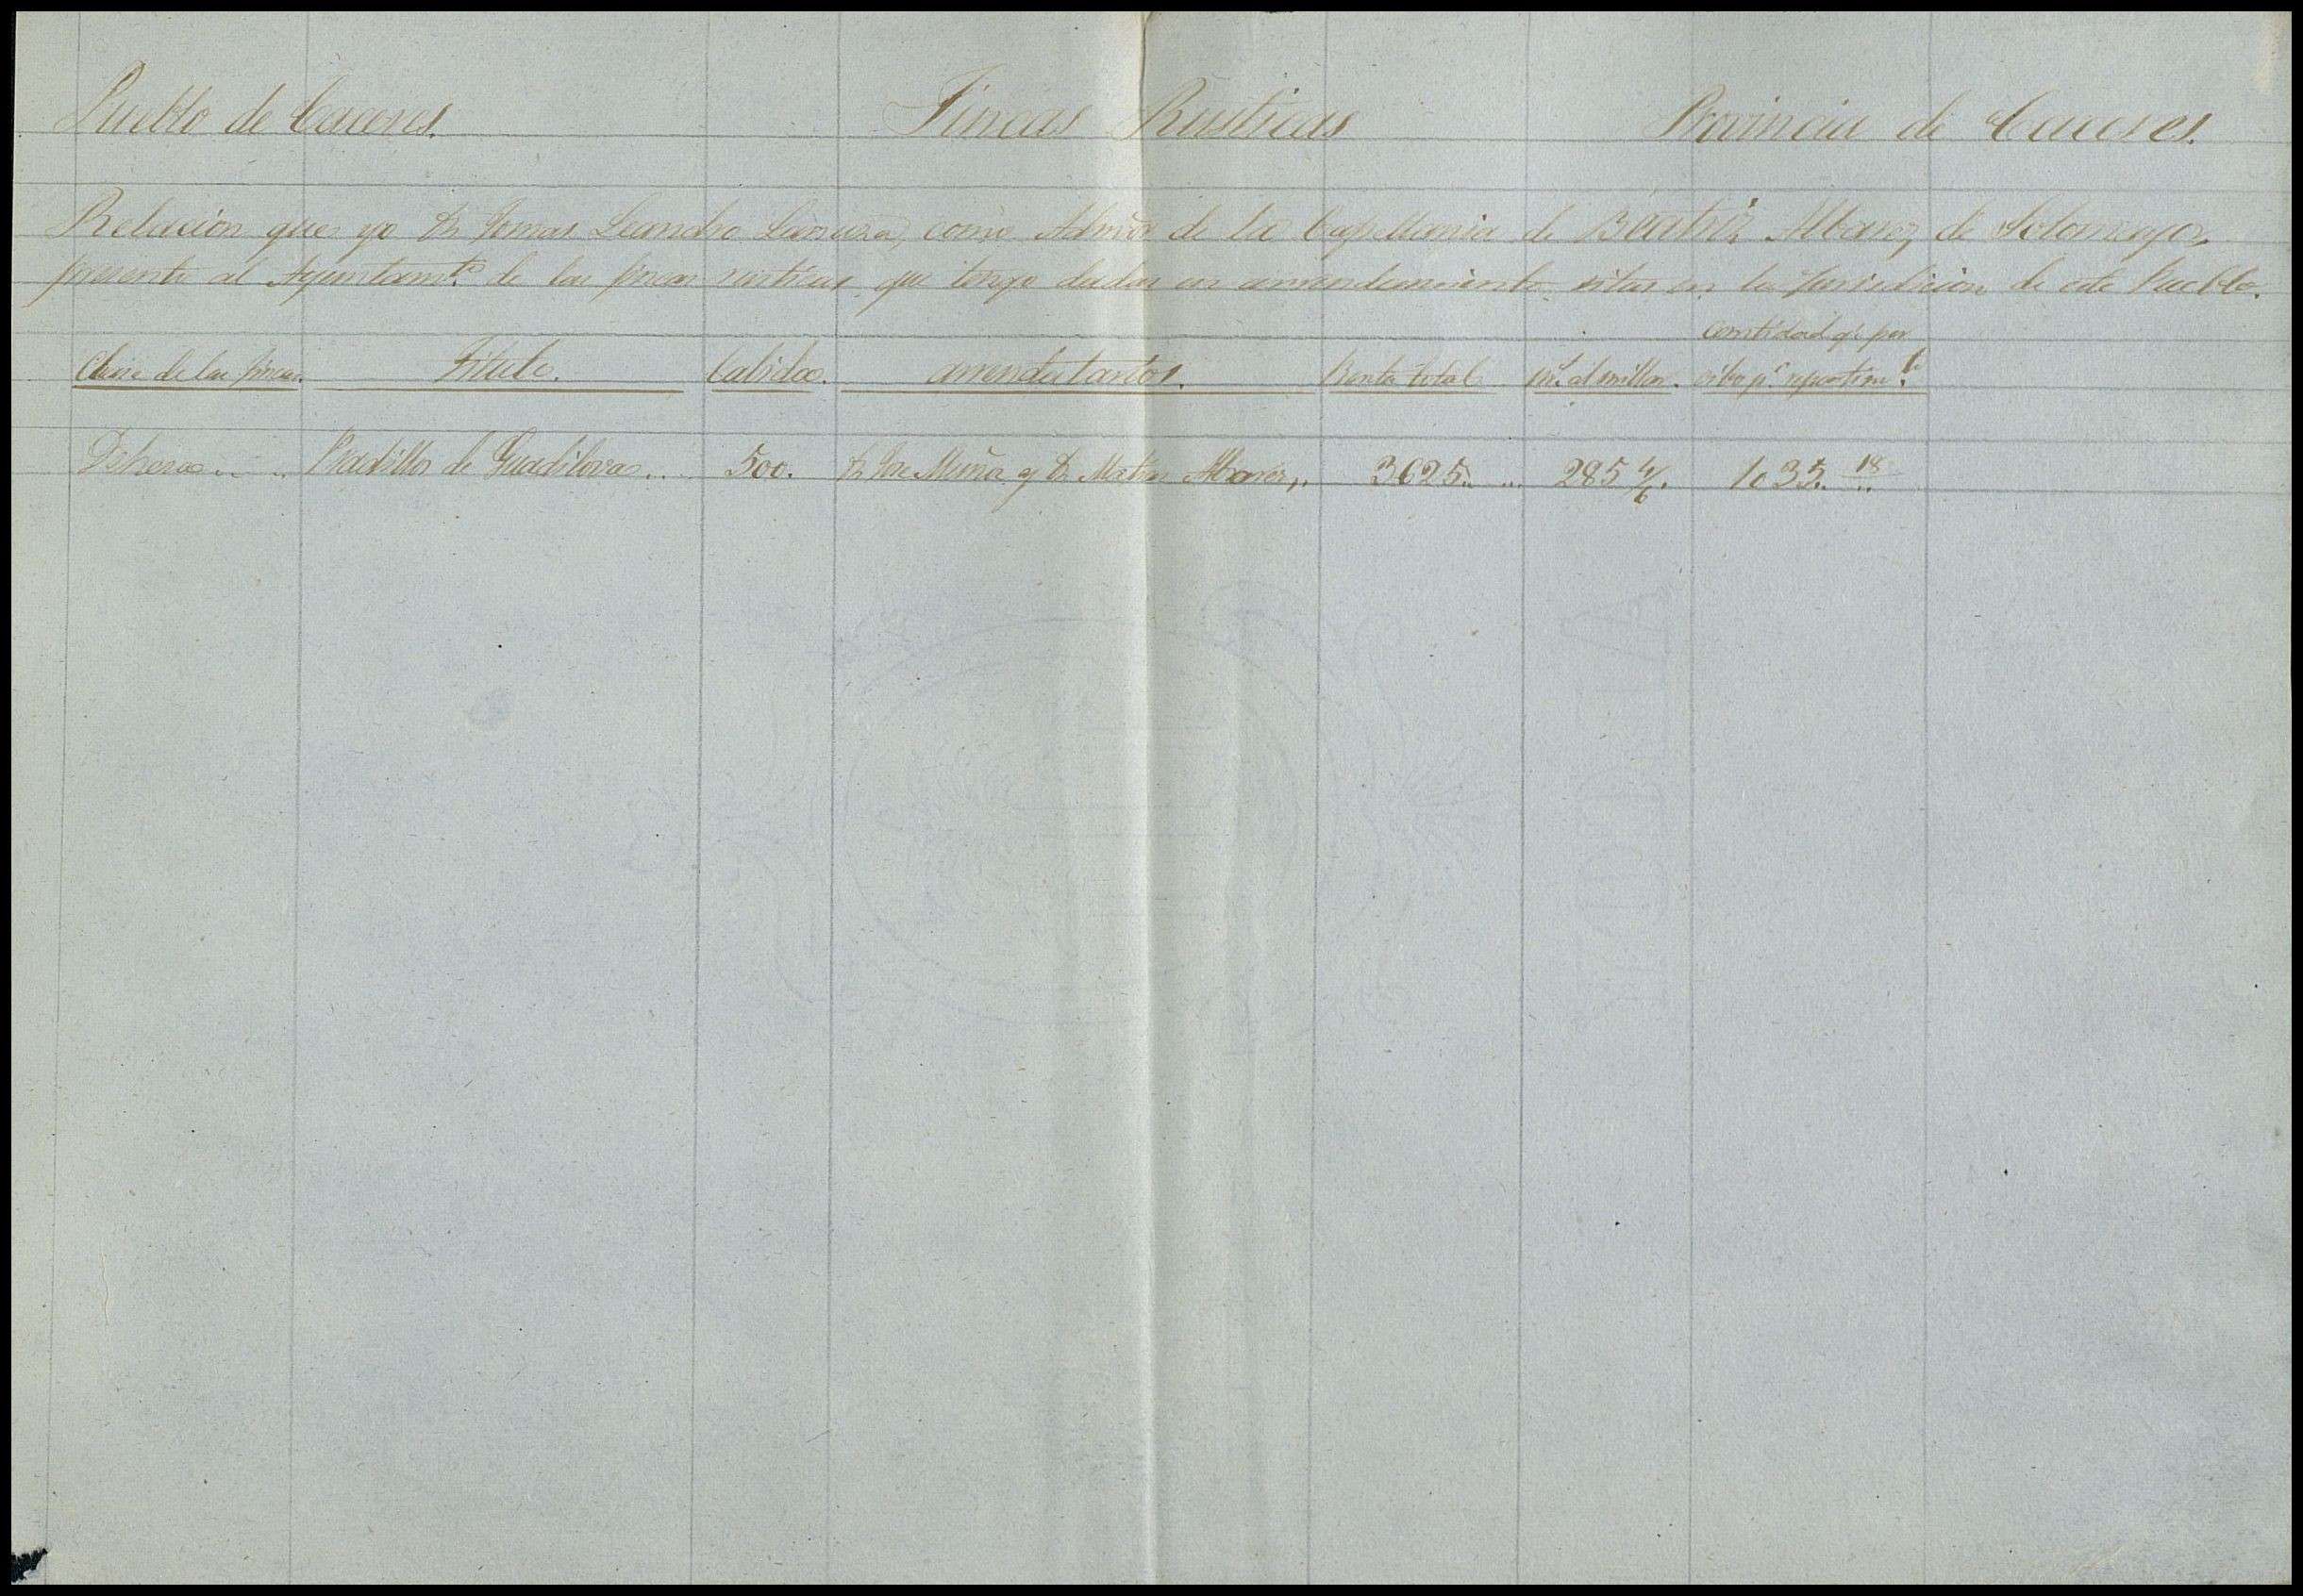 Pueblo de Caceres. Fincas Rusticas Provincia de Caceres.
Relacion que yo Dn Tomas Leandro como Admor de la Capellania de Beatriz Albarez de Sotomayor,
presento al Ayuntamto de las fincas rusticas que tengo dadas en arrendamiento sitas en la Jurisdicion de este Pueblo.
Clase de las fincas. Titulo. Cabida. arrendatarios. Renta total al millar. Cantidad qe per
cibo pr repartimto
Dehesa.. .. Pradillo de Guadiloba.... 500. Dn Jose Muñoz y Dn Matias Albarez,. 3625.. ... 285 4/6. 1035.. 18